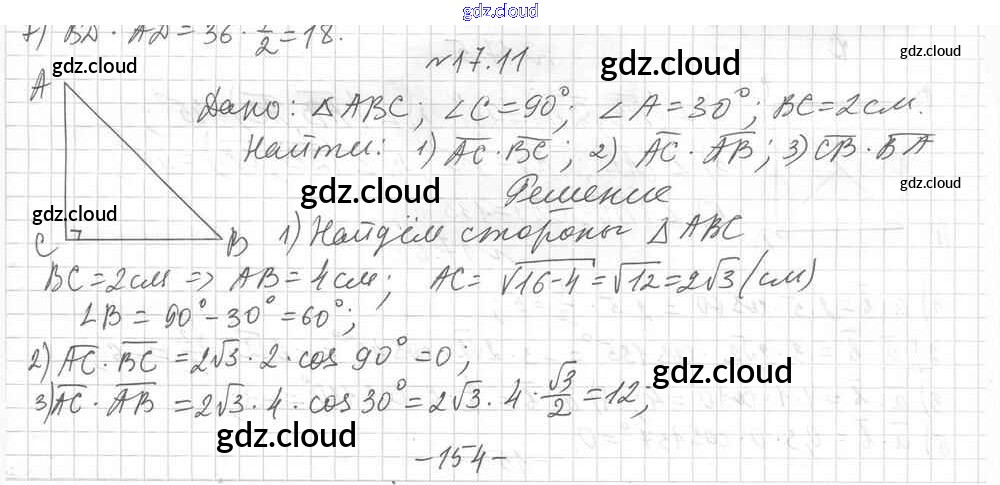 gdz.cloud
7) BD · AD = 36 · 1/2 = 18.
№17.11
gdz.cloud
gdz.cloud
gdz.cloud
A
Дано: △ABC; ∠C = 90°; ∠A = 30°; BC = 2 см.
Найти: 1) A̅C̅ · B̅C̅; 2) A̅C̅ · A̅B̅; 3) C̅B̅ · B̅A̅
gdz.cloud
gdz.cloud
Решение
gdz.cloud
C
B
1) Найдём стороны △ABC
BC = 2 см => AB = 4 см; AC = √16-4 = √12 = 2√3 (см)
∠B = 90° - 30° = 60°;
2) A̅C̅ · B̅C̅ = 2√3 · 2 · cos 90° = 0;
gdz.cloud
3) A̅C̅ · A̅B̅ = 2√3 · 4 · cos 30° = 2√3 · 4 · √3/2 = 12;
gdz.cloud
-154-